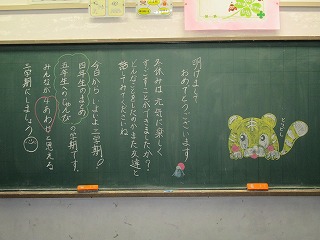 明けまして
おめでとうございます!
冬休みは元気に楽しく
すごすことができましたか?
どんなことをしたのかまた友達と
話してみてくださいね
今日からいよいよ三学期!
四年生のまとめ
五年生へのじゅんび の学期です。
みんなが と思える
三学期にしましょう
とらどし